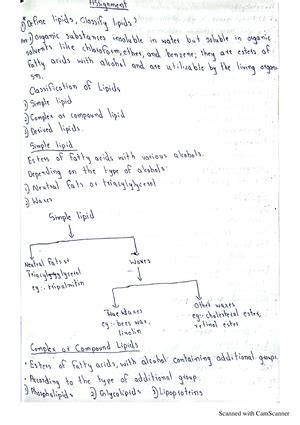 Assignment
1) Define lipids, Classify lipids?
Ans 1) Organic substances insoluble in water but soluble in organic
solvents like chloroform, ether, and benzene; they are esters of
fatty acids with alcohol and are utilizable by the living organi
sm.
Classification of Lipids
1) Simple lipid
2) Complex or compound lipid
3) Derived lipids.
Simple lipid
Esters of fatty acids with various alcohols.
Depending on the type of alcohols:
1) Neutral fats or triacylglycerol
2) Waxes
Simple lipid
Neutral Fats or
Triacylglycerol
eg:- tripalmitin
Waxes
True Waxes
eg:- bees wax,
linolin
Other waxes
eg:- cholesterol ester,
retinol ester
Complex or Compound Lipids
• Esters of fatty acids, with alcohol containing additional groups.
• According to the type of additional group:
1) Phospholipids 2) Glycolipids 3) Lipoproteins
Scanned with CamScanner